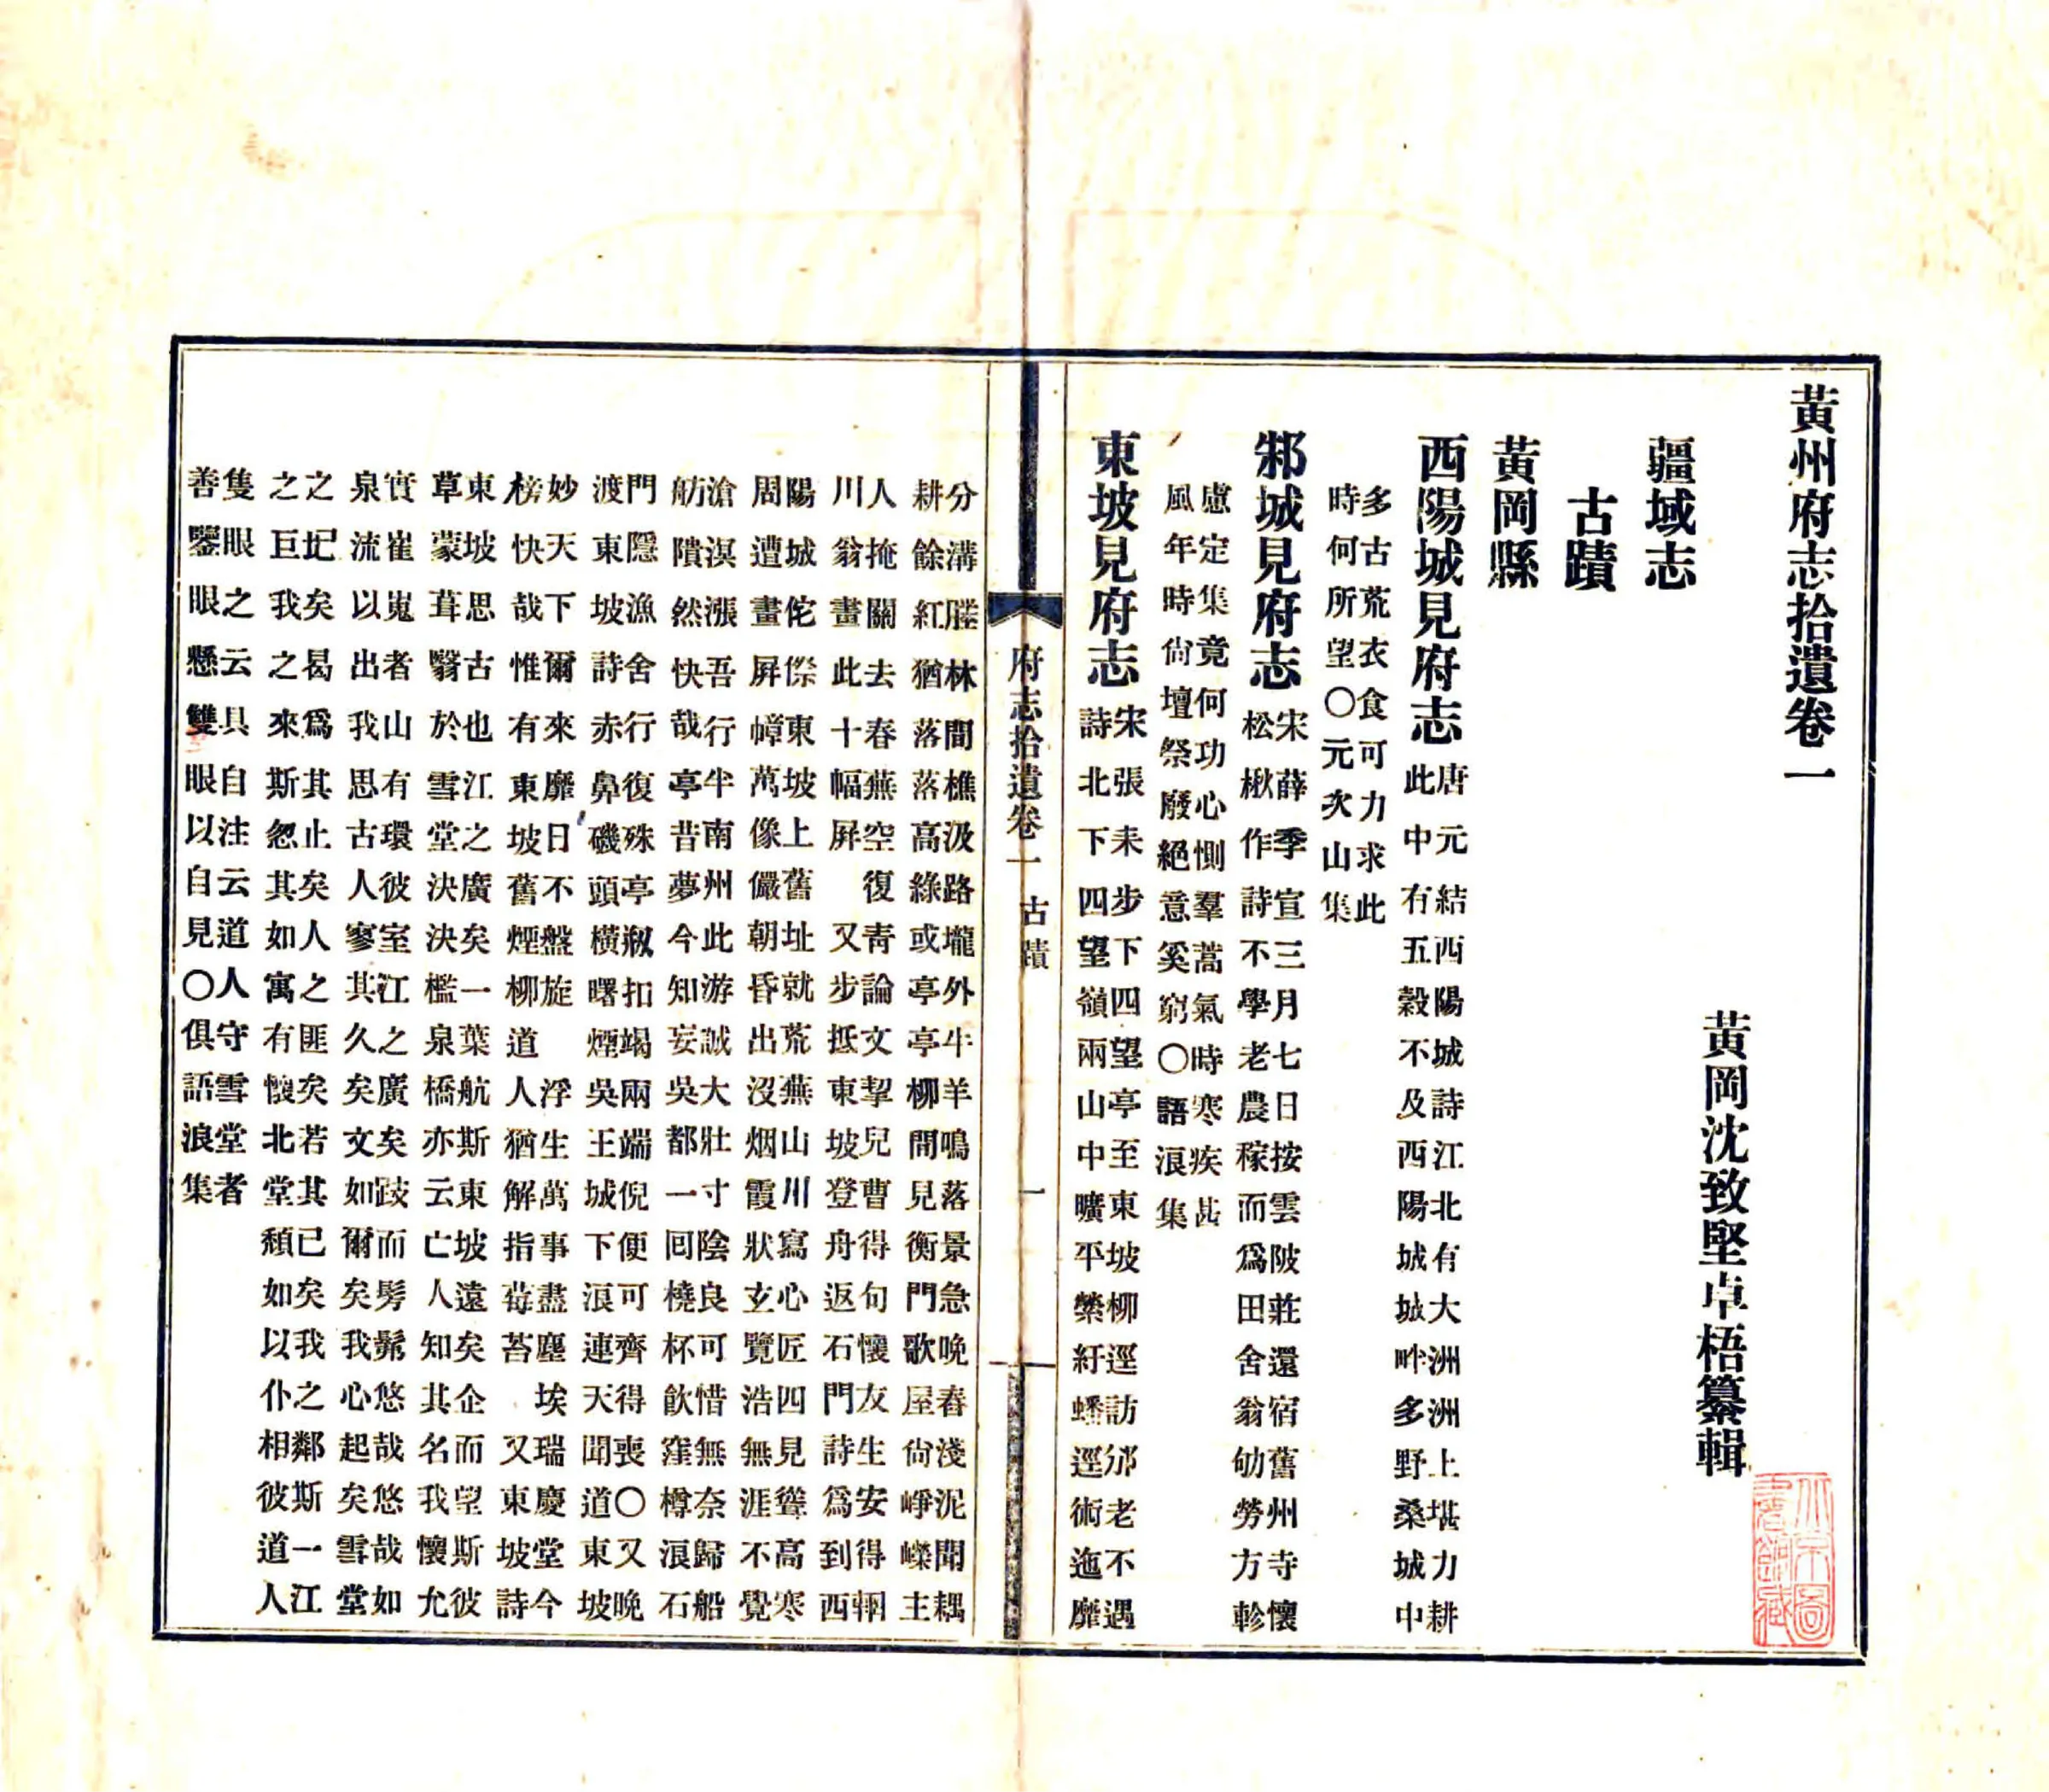 黃州府志拾遺卷一
黃岡沈致堅卓梧纂輯
疆域志
古蹟
黃岡縣
西陽城見府志
唐元結西陽城詩江北有大洲洲上堪力耕
此中有五穀不及西陽城城畔多野桑城中
多古荒衣食可力求此
時何所望〇元次山集
邾城見府志
宋薛季宣三月七日按雲陂莊還宿舊州寺懷
松楸作詩不學老農稼而爲田舍翁劬勞方軫
慮定集竟何功心惻羣蒿氣時寒疾甚
風年時尙壇祭廢絕意奚窮〇語浪集
東坡見府志
宋張耒步下四望亭至東坡柳逕訪邠老不遇
詩北下四望嶺兩山中曠平縈紆蟠逕術迤靡
分溝塍林間樵汲路壠外牛羊鳴落景急晚春淺泥聞耦
耕餘紅猶落落高綠或亭亭柳間見衡門歌屋尙崢嶸主
人掩關去春蕪空復青論文挈兒曹得句懷友生安得輞
川翁畫此十幅屏 又步抵東坡登舟返石門詩爲到西
陽城佗傺東坡上舊址就荒蕪山川寫心匠四見聳高寒
周遭畫屏幛萬像儼朝昏出沒烟霞狀玄覽浩無涯不覺
滄溟漲吾行半南州此游誠大壯寸陰良可惜無奈歸船
舫隤然快哉亭昔夢今知妄吳都一回橈杯飮窪樽浪石
門隱漁舍行復殊亭榭扣竭兩端倪便可齊得喪〇又晚
渡東坡詩赤鼻磯頭橫曙煙吳王城下浪連天聞道東坡
妙天下爾來靡日不盤旋 浮生萬事盡塵埃瑞慶堂今
榜快哉惟有東坡舊煙柳道人猶解指莓苔 又東坡詩
東坡思古也江之廣矣一葉航斯東坡遠矣企而望斯彼
草蒙茸翳於雪堂決決檻泉橋亦云亡人知其名我懷允
實崔嵬者山有環彼室江之廣矣跂而髣髴悠哉悠哉如
泉流以出我思古人寥其久矣文如爾矣我心起矣雪堂
之圮矣曷爲其止矣人之匪矣若其已矣我之鄰斯一江
之巨我之來斯忽其如寓有懷北堂頹如以仆相彼道人
隻眼之云具自注云道人守雪堂者
善鑒眼懸雙眼以自見〇俱語浪集
府志拾遺卷一 古蹟 一